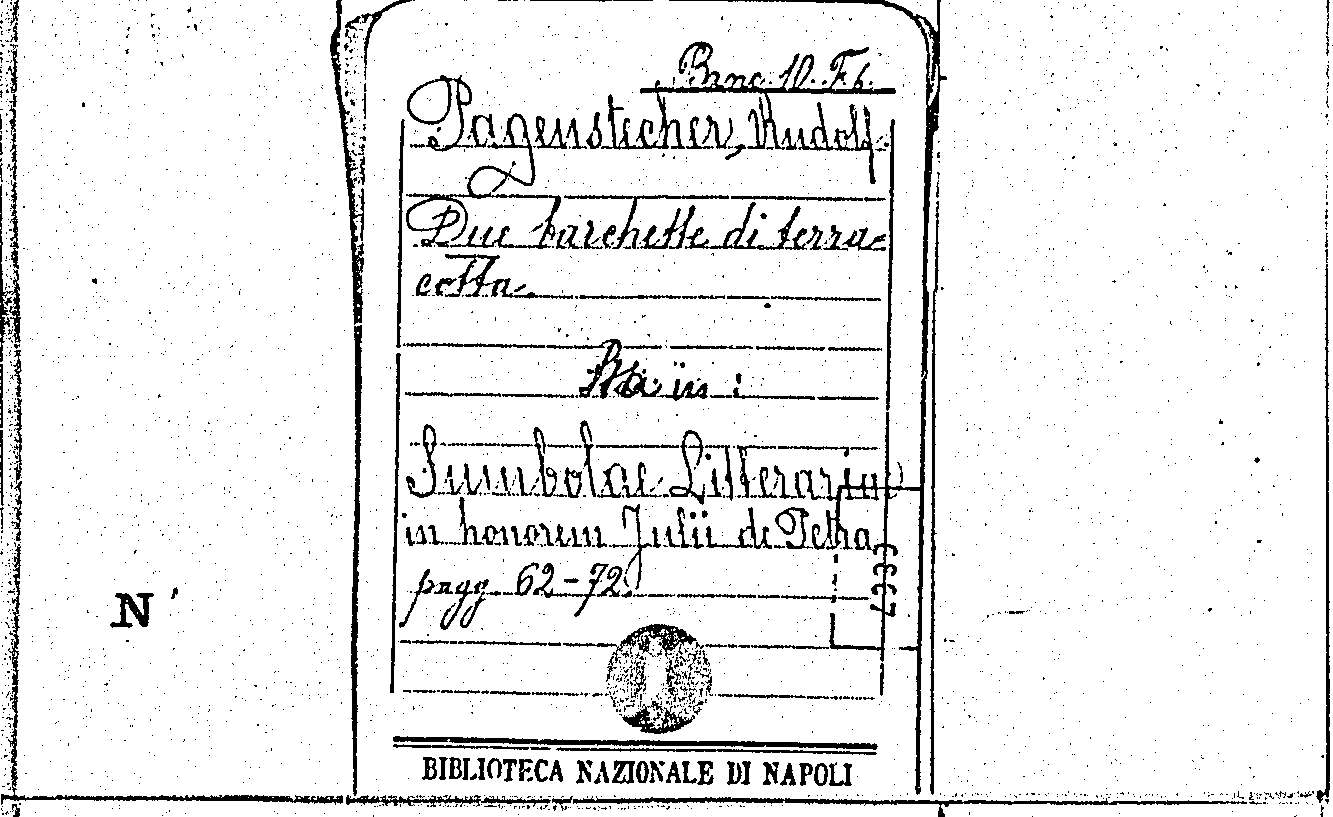 Banc. 10. F. 6.
Pagenstecher, Rudolf
Due barchette di terra=
cotta.
Sta in :
Sumbolae Litterariae
in honorem Julii de Petra
pagg. 62-72.
N
BIBLIOTECA NAZIONALE DI NAPOLI